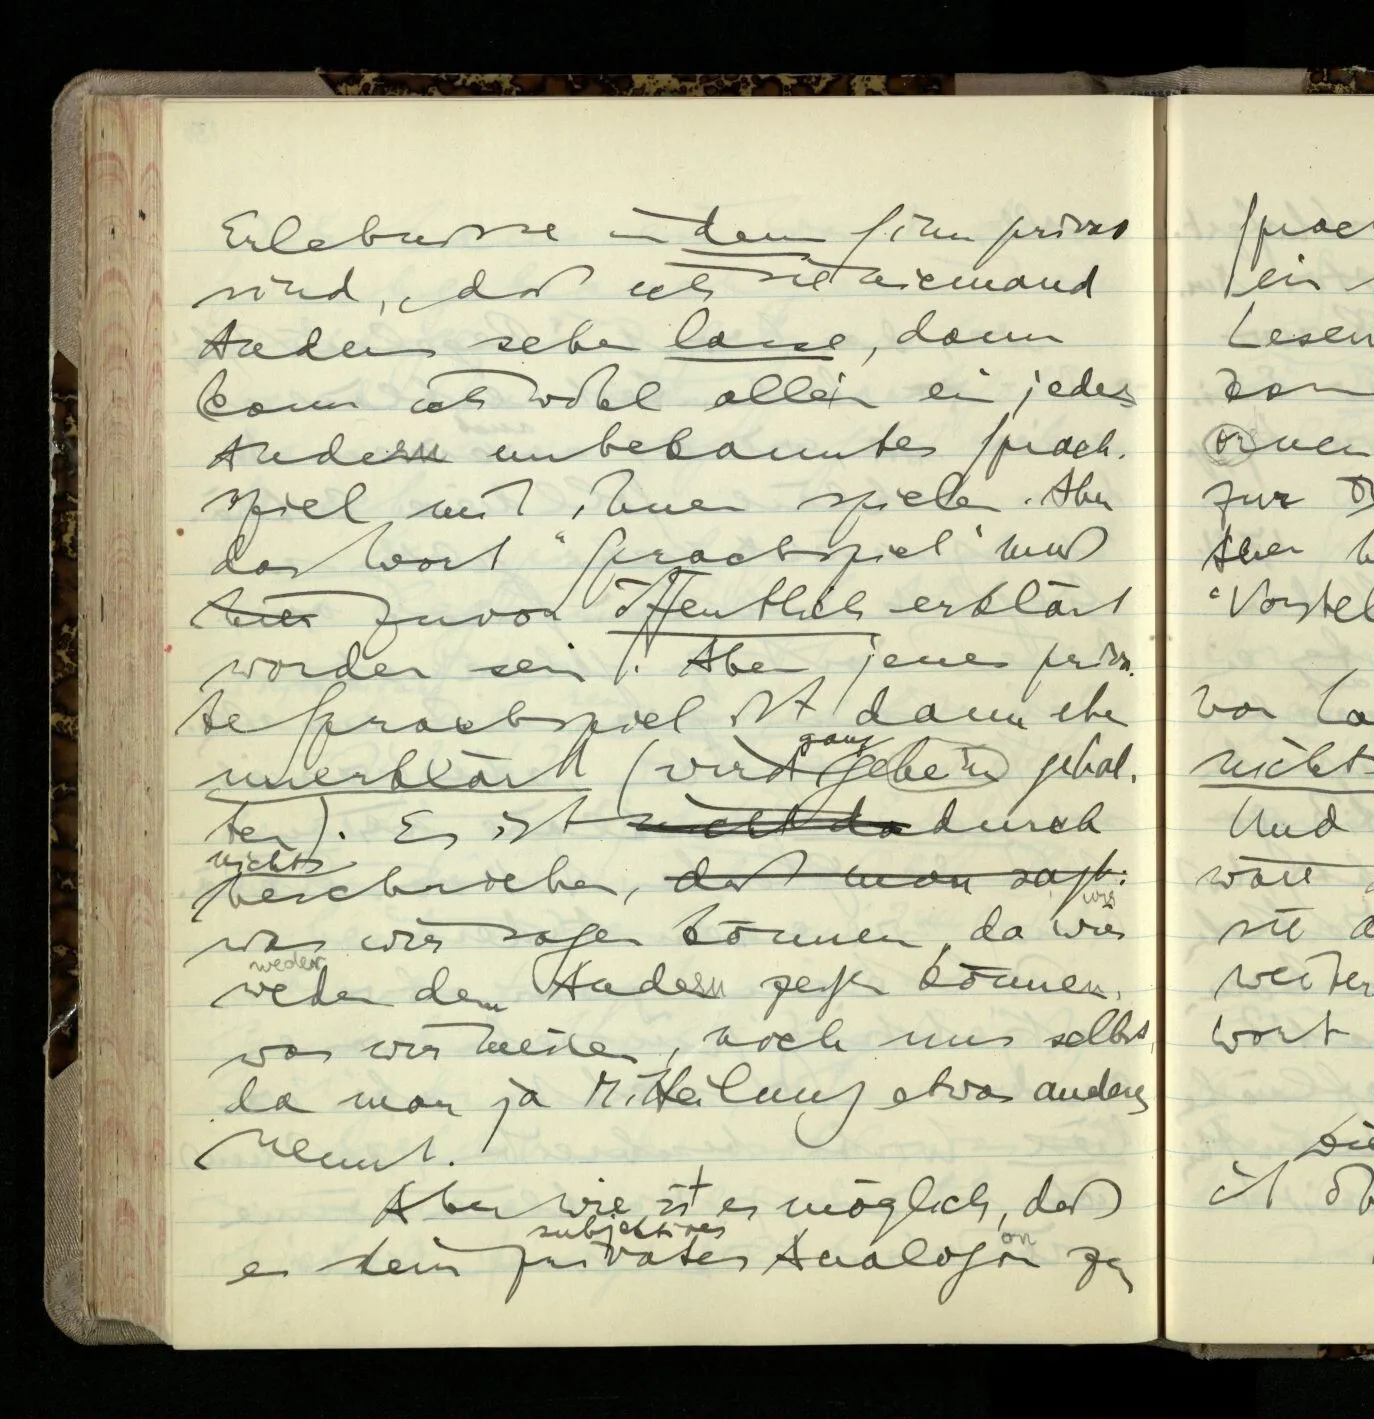 Erlebnisse in dem Sinn privat
sind, daß ich sie niemand
Andern sehen lasse, dann
kann ich wohl allein ein jedes
Andern unbekanntes Sprach-
spiel mit ihnen spielen. Aber
das Wort "Sprachspiel" muß
hier zuvor öffentlich erklärt
worden sein. Aber jenes priva-
te Sprachspiel ist dann eben
ganz
unerklärt (wird geheim gehal-
ten). Es ist nicht da durch
nichts
beschrieben, daß man sagt:
wir
was wir sagen können, da wir
weder
weder dem Andern zeigen können,
was wir meinen, noch uns selbst,
da man ja Mitteilung etwas anders
nennt.
Aber wie ist es möglich, daß
subjektives
on
es kein privates Analogon zu
Sprac
ein
Lesen
kan
zur
Aber
'Vorstel
vor
nicht
Und
wäre
sie
weiter
wort
Die
ist